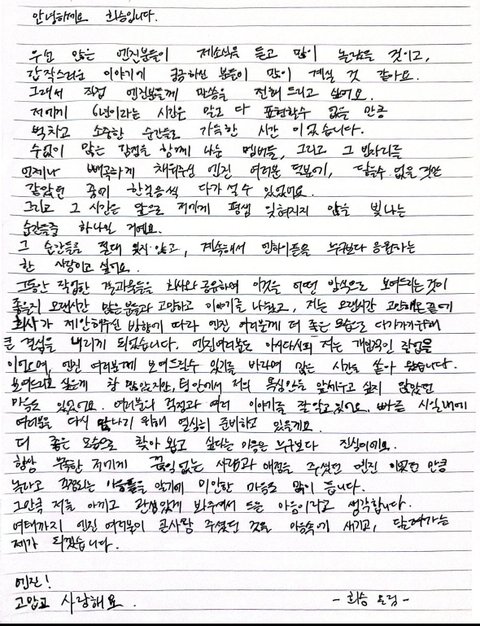 안녕하세요 희승입니다.
우선 많은 엔진분들이 제소식을 듣고 많이 놀랐을 것이고,
갑작스러운 이야기에 궁금하신 분들이 많이 계실 것 같아요.
그래서 직접 엔진분들께 말씀을 전해드리고 싶어요.
저에게 6년이라는 시간은 말로 다 표현할수 없을 만큼
벅차고 소중한 순간들로 가득한 시간 이었습니다.
수없이 많은 감정을 함께 나눈 멤버들, 그리고 그 빈자리를
언제나 빼곡하게 채워주신 엔진 여러분 덕분에, 닿을수 없을 것만
같았던 꿈에 한걸음씩 다가설 수 있었어요.
그리고 그 시간은 앞으로 저에게 평생 잊혀지지 않을 빛나는
순간들중 하나일 거예요.
그 순간들을 절대 잊지않고, 계속해서 엔하이픈을 누구보다 응원하는
한 사람이고 싶어요.
그동안 작업한 결과물들을 회사와 공유하며 이것을 어떤 방식으로 보여드리는것이
좋을지 오랜시간 많은분들과 고민하고 이야기를 나눴고, 저는 오랜시간 고민해온끝에
회사가 제안해주신 방향에 따라 엔진 여러분께 더 좋은모습으로 다가가기위해
큰 결심을 내리게 되었습니다. 엔진여러분도 아시다시피 저는 개인적인 작업을
이어오며, 엔진 여러분께 보여드릴수 있기를 바라며 많은 시간을 쏟아 왔습니다.
보여드리고 싶은게 참 많았지만, 팀 안에서 저의 욕심만을 앞세우고 싶지 않았던
마음도 있었어요. 여러분의 걱정과 여러 이야기를 잘 알고있어요. 빠른 시일내에
여러분을 다시 만나기 위해 열심히 준비하고 있을게요.
더 좋은 모습으로 찾아 뵙고 싶다는 마음은 누구보다 진심이에요.
항상 부족한 저에게 끊임없는 사랑과 애정을 주셨던 엔진 이었던 만큼
놀라고 걱정되는 마음들을 알기에 미안한 마음도 많이 듭니다.
그만큼 저를 아끼고 관심있게 봐주셔서 드는 마음이라고 생각합니다.
여태까지 엔진 여러분이 큰사랑 주셨던 것을 마음속에 새기고, 달려가는
제가 되겠습니다.
엔진!
고맙고 사랑해요.
- 희승 올림 -